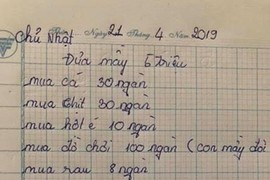 Chủ Nhật Ngày 21 Tháng 4 Năm 2019
Đưa mầy 5 triệu
mua cá 30 ngàn
mua thit 80 ngàn
mua hột é 10 ngàn
mua đồ chơi 100 ngàn ( con mầy đòi
mua rau 8 ngàn